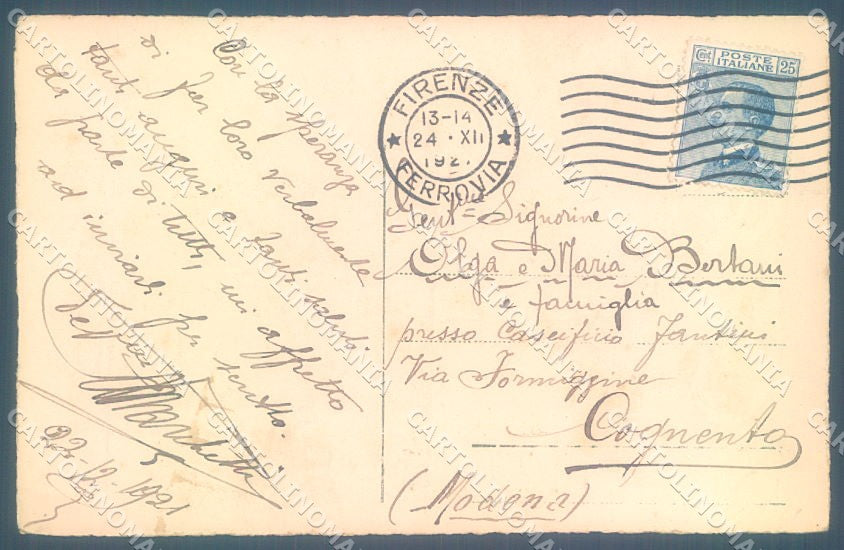 Con la speranza
di far loro verbalmente
tanti auguri e tanti saluti
da parte di tutti, mi affretto
ad inviarli per scritto.
Marchetti
22.12.1921
FIRENZE
13-14
24 · XII
192
FERROVIA
POSTE
ITALIANE
Cent. 25
Gent.me Signorine
Olga e Maria Bertani
e famiglia
presso Caseificio
Via Formiggine
Cognento
(Modena)
CARTOLINOMANIA